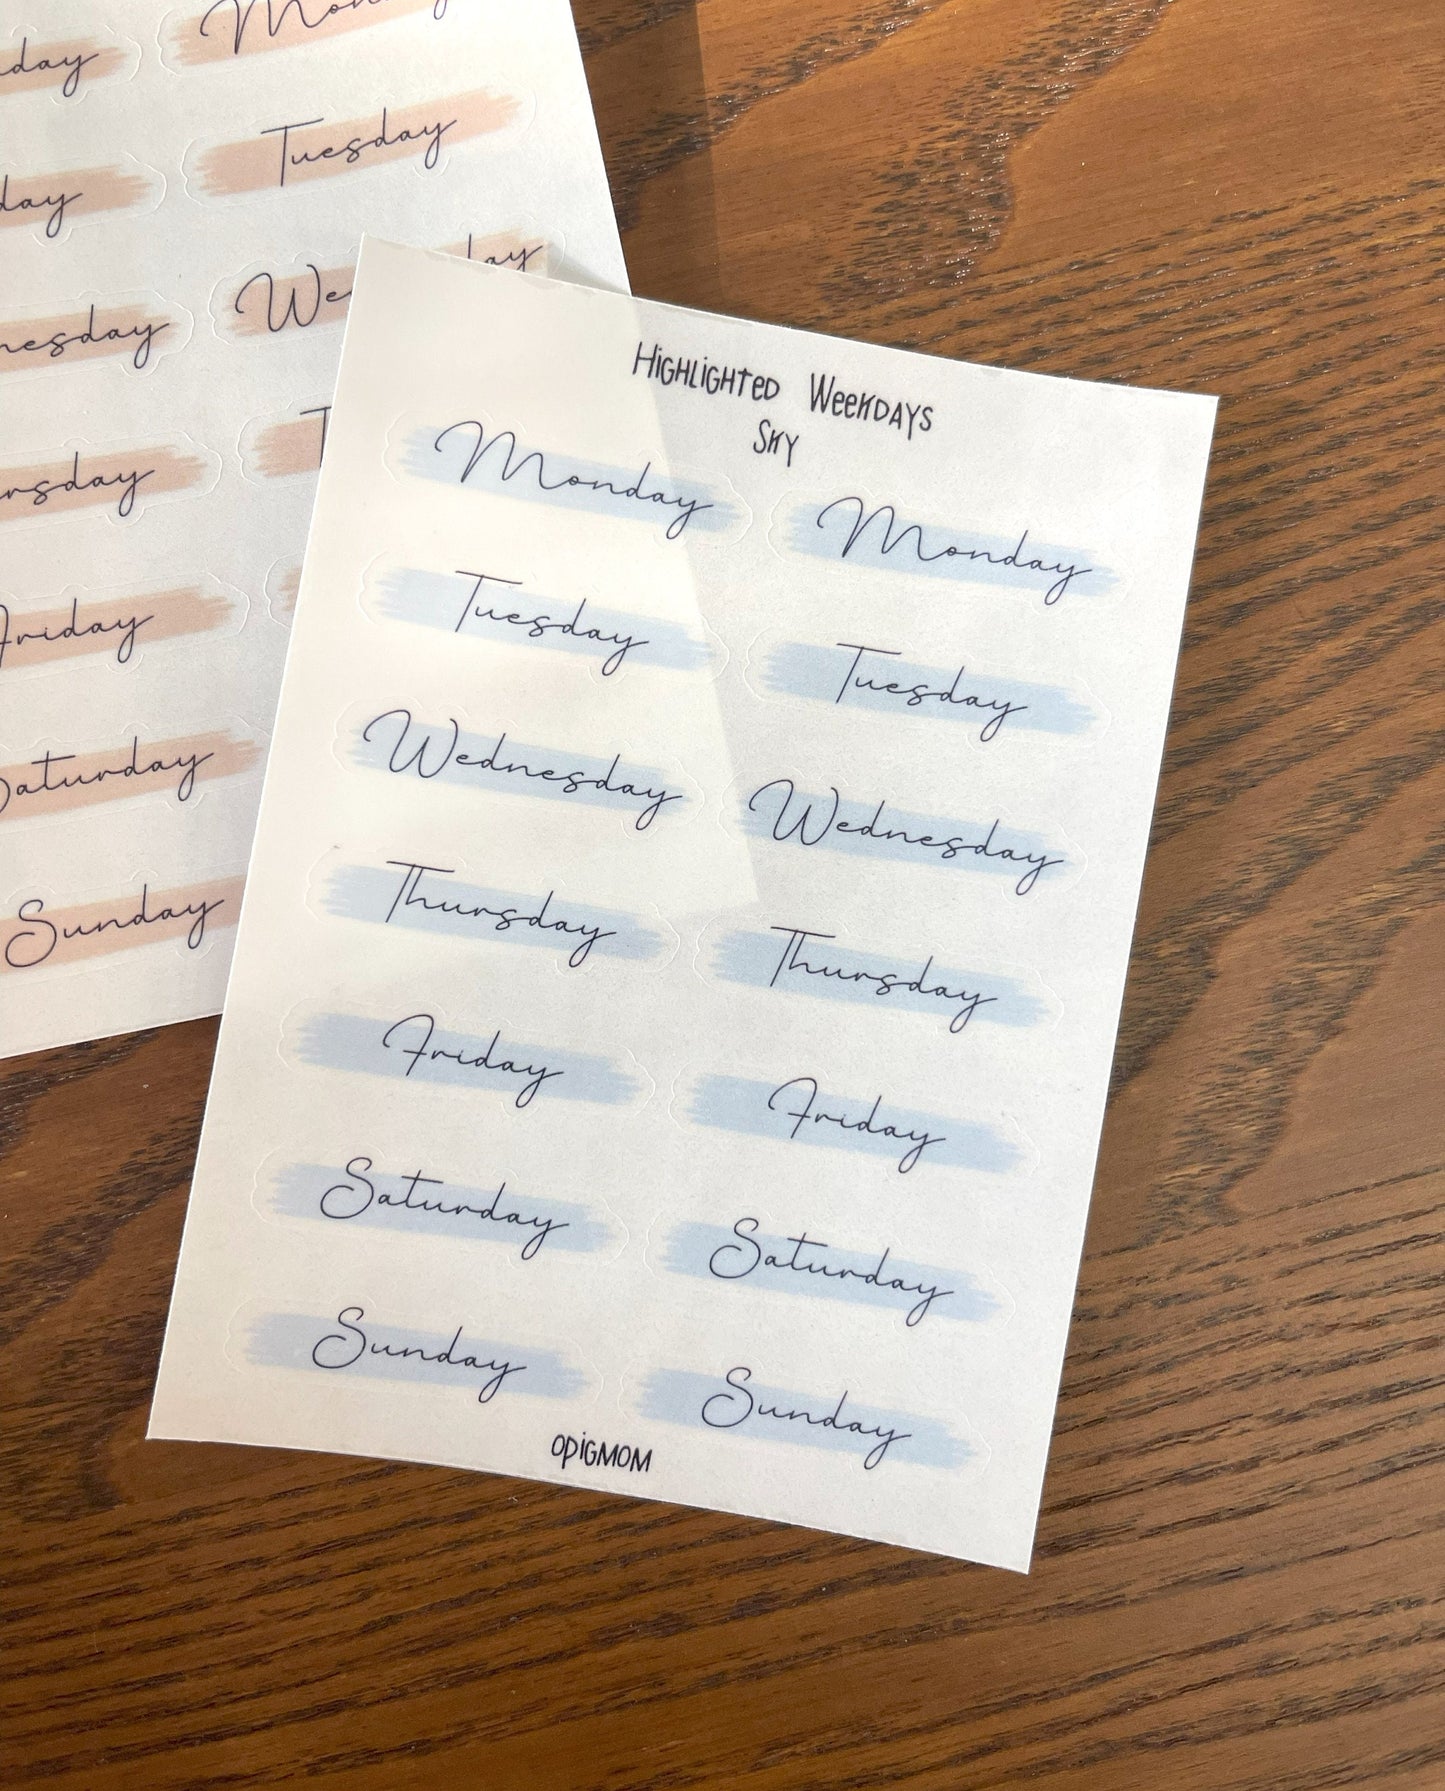 Monday
Tuesday
Friday
Saturday
Sunday
Highlighted Weekdays
Sky
Monday Monday
Tuesday Tuesday
Wednesday Wednesday
Thursday Thursday
Friday Friday
Saturday Saturday
Sunday Sunday
OPIGMOM